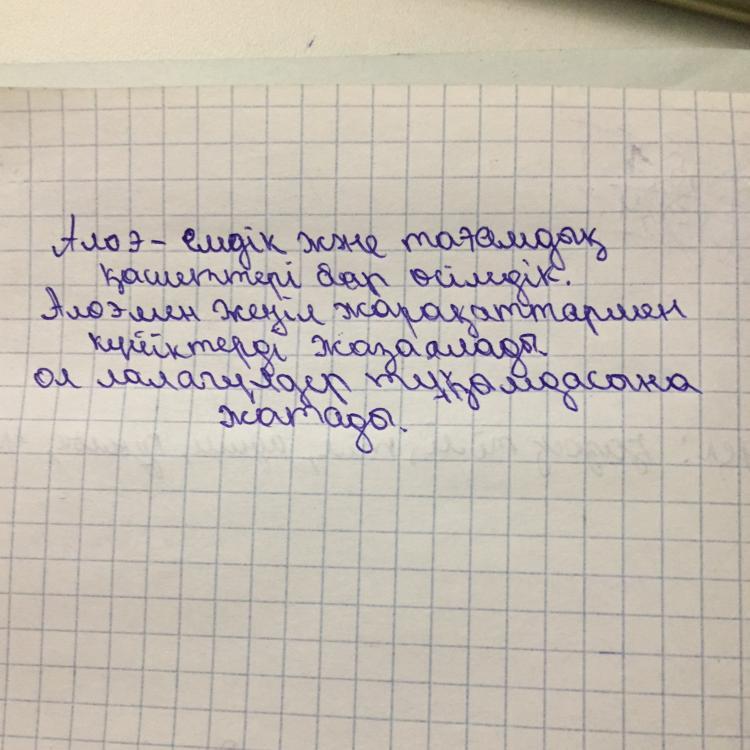 Алоэ - емдік және тағамдық
қасиеттері бар өсімдік.
Алоэмен жеңіл жарақаттармен
күйіктерді жазаалады.
ол лалагүлдер тұқымдасына
жатады.